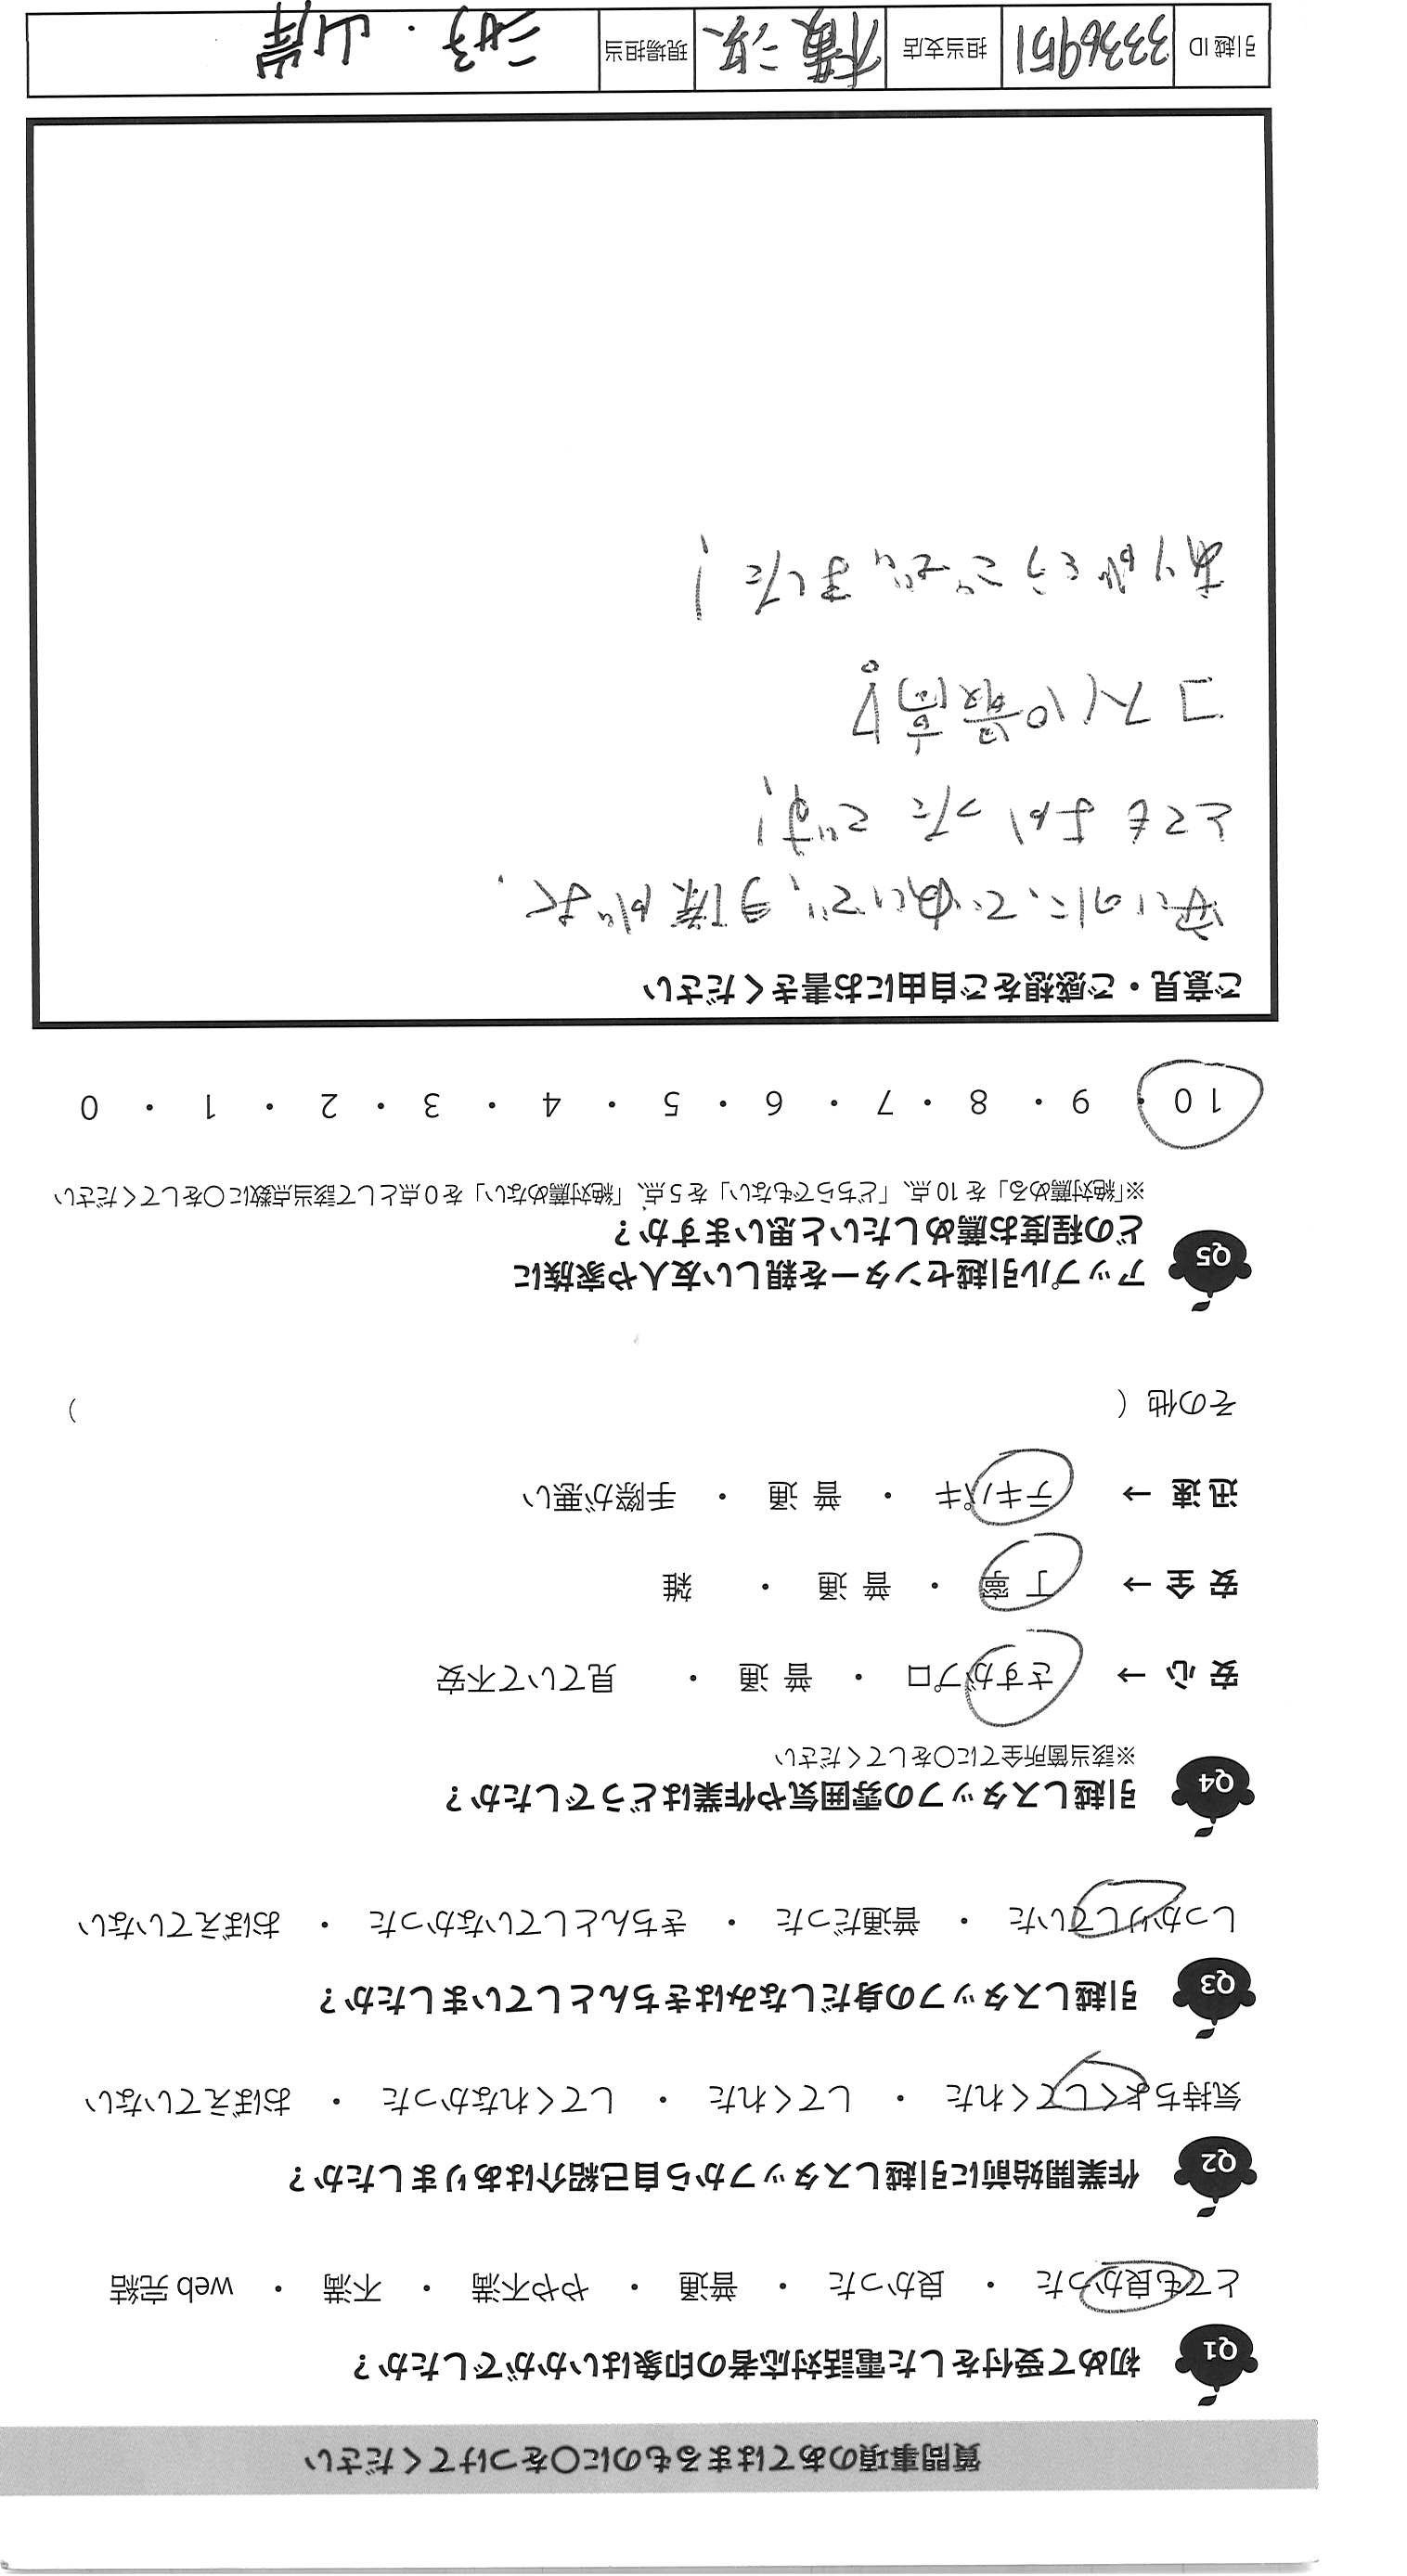 質問事項のあてはまるものに○をつけてください
Q1 初めて受付をした電話対応者の印象はいかがでしたか？
とても良かった ・ 良かった ・ 普通 ・ やや不満 ・ 不満 ・ web 完結
Q2 作業開始前に引越しスタッフから自己紹介はありましたか？
気持ちよくしてくれた ・ してくれた ・ してくれなかった ・ おぼえていない
Q3 引越しスタッフの身だしなみはきちんとしていましたか？
しっかりしていた ・ 普通だった ・ きちんとしていなかった ・ おぼえていない
Q4 引越しスタッフの雰囲気や作業はどうでしたか？
※該当箇所全てに○をしてください
安 心 → さすがプロ ・ 普 通 ・ 見ていて不安
安 全 → 丁 寧 ・ 普 通 ・ 雑
迅 速 → テキパキ ・ 普 通 ・ 手際が悪い
その他（ ）
Q5 アップル引越センターを親しい友人や家族に
どの程度お薦めしたいと思いますか？
※「絶対薦める」を 10 点、「どちらでもない」を 5 点、「絶対薦めない」を 0 点として該当点数に○をしてください
10 ・ 9 ・ 8 ・ 7 ・ 6 ・ 5 ・ 4 ・ 3 ・ 2 ・ 1 ・ 0
ご意見・ご感想をご自由にお書きください
安いのに、ていねいで、手際がよく、
とてもよかったです！
コスパ最高！
ありがとうございました！
引越 ID 3336951 担当支店 横浜 現場担当 三好・山岸